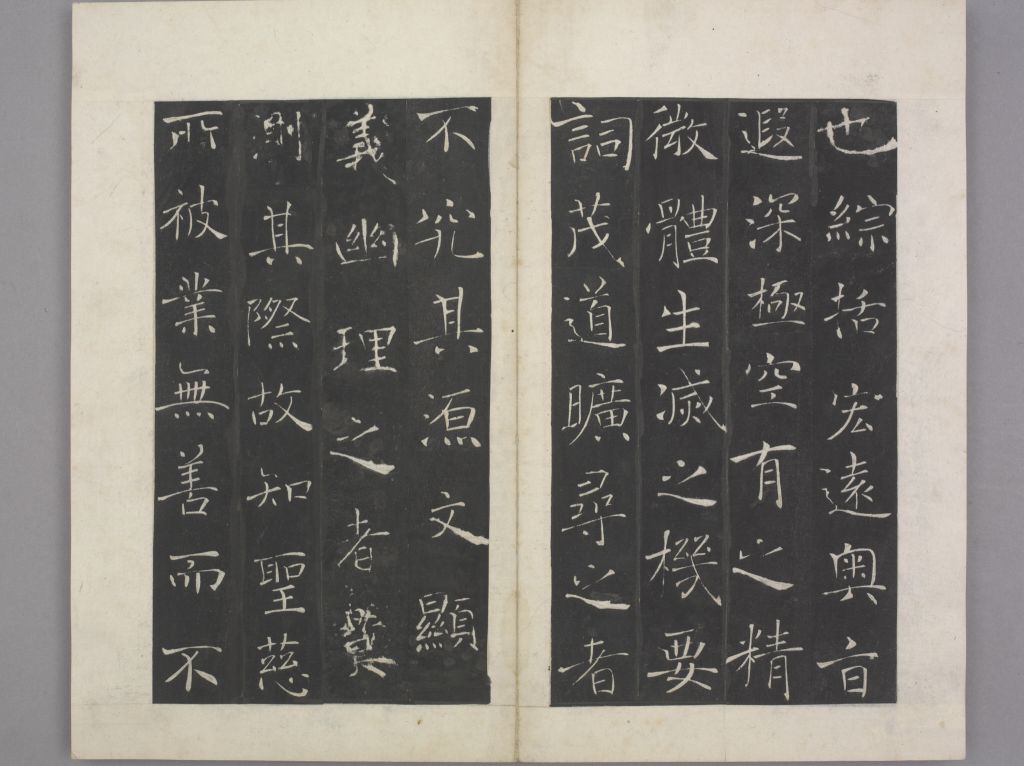 也綜括宏遠奧旨
遐深極空有之精
微體生滅之機要
詞茂道曠尋之者
不究其源文顯
義幽理之者莫
測其際故知聖慈
所被業無善而不